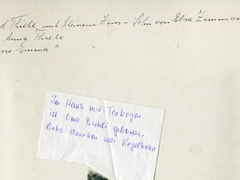 d Thiele mit kleinem Hans - Sohn von Elsa Zimmer
Anna Thiele
Emma"
Im Haus mit Torbogen
ist Oma geboren,
links daneben war Kegelbahn